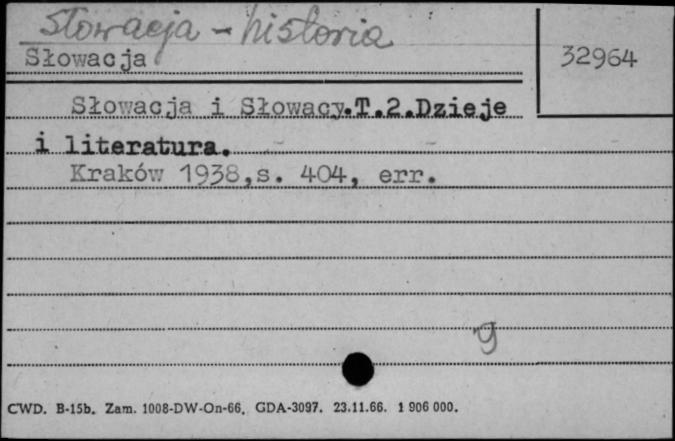 Słowacja - historia
Słowacja
32964
Słowacja i Słowacy.T.2.Dzieje
i literatura.
Kraków 1938,s. 404, err.
g
CWD. B-15b. Zam. 1008-DW-On-66. GDA-3097. 23.11.66. 1 906 000.